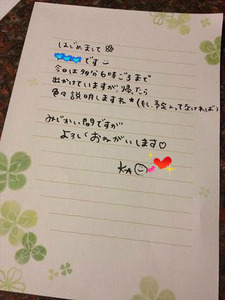 はじめまして
です
今日は多分6時ごろまで
出かけていますが帰ったら
色々説明しますね★(もし、予定入ってなければ)
みじかい間ですが
よろしくおねがいします♡